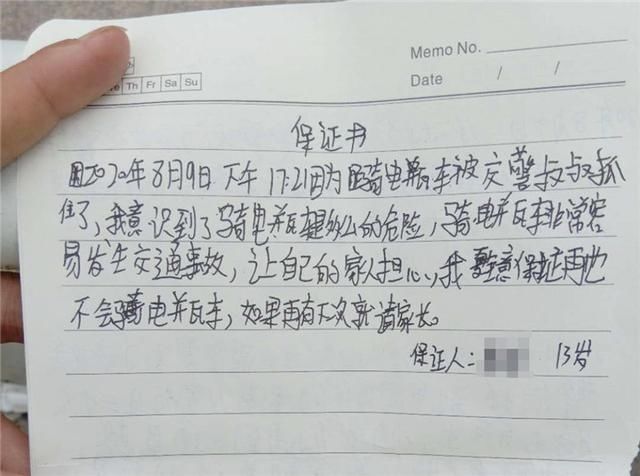 Memo No.
Th Fr Sa Su
Date / /
保证书
2020年8月9日下午17:21因为骑电瓶车被交警叔叔抓
住了,我意识到了骑电瓶车是多么的危险,骑电瓶车非常容
易发生交通事故,让自己的家人担心,我愿意保证再也
不会骑电瓶车,如果再有下次就请家长。
保证人: 13岁